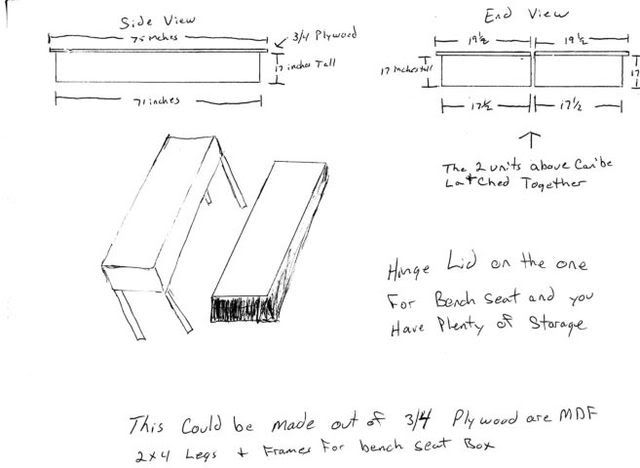 Side View
75 inches
3/4 Plywood
17 inches Tall
71 inches
End View
19 1/2
19 1/2
17 inches tall
17
17 1/2
17 1/2
The 2 units above Can be
Latched Together
Hinge Lid on the one
For Bench Seat and you
Have Plenty of Storage
This Could be made out of 3/4 Plywood are MDF
2x4 Legs + Frames For bench seat Box